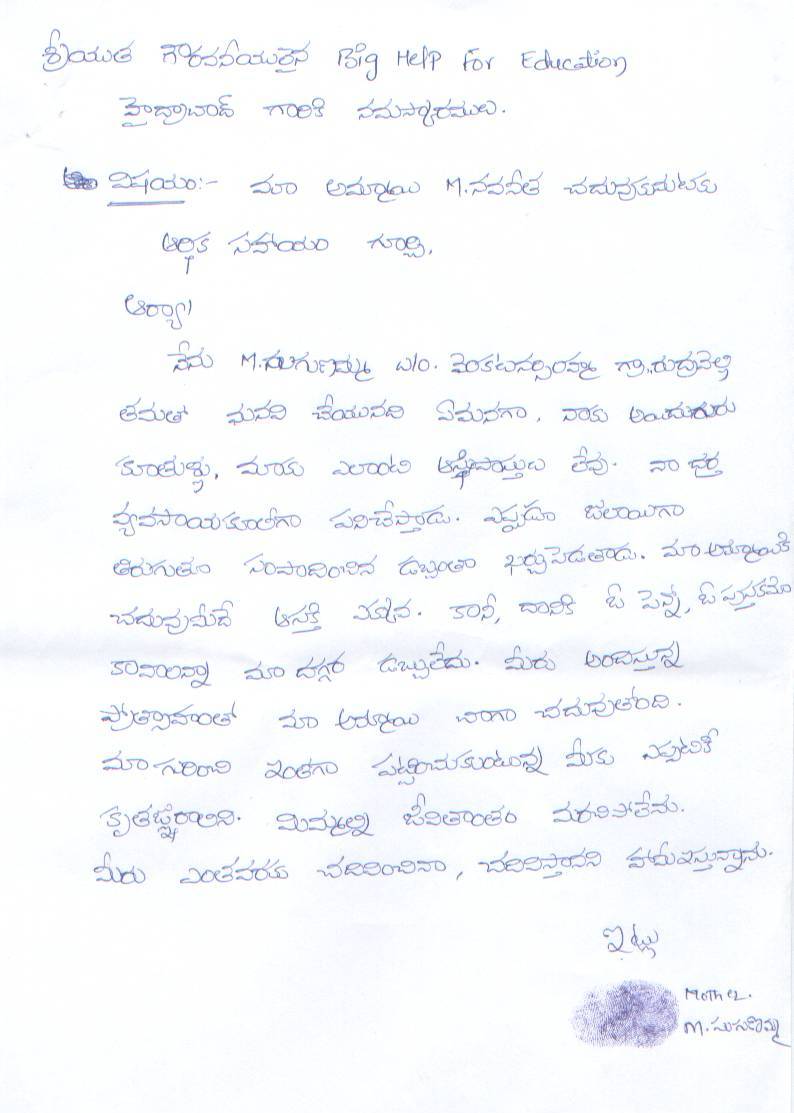 శ్రీయుత గౌరవనీయులైన Big Help For Education
హైద్రాబాద్ గారికి నమస్కారములు.
విషయం:- మా అమ్మాయి M.నవనీత చదువుకునుటకు
ఆర్థిక సహాయం గూర్చి,
ఆర్యా!
నేను M.సుగుణమ్మ W/o. వెంకటనర్సింహ్మా గ్రా,,రుద్రవెల్లి
తమతో మనవి చేయునది ఏమనగా, నాకు అయిదుగురు
కూతుళ్లు, మాకు ఎలాంటి ఆస్తిపాస్తులు లేవు. నా భర్త
వ్యవసాయకూలీగా పనిచేస్తాడు. ఎప్పుడూ జలాయిగా
తిరుగుతూ సంపాదించిన డబ్బంతా ఖర్చుపెడతాడు. మా అమ్మాయికి
చదువుమీదే ఆసక్తి ఎక్కువ. కానీ, దానికి ఓ పెన్నో, ఓ పుస్తకమో
కావాలన్నా మా దగ్గర డబ్బులేదు. మీరు అందిస్తున్న
ప్రోత్సాహంతో మా అమ్మాయి బాగా చదువుతోంది.
మా గురించి ఇంతగా పట్టించుకుంటున్న మీకు ఎప్పటికీ
కృతజ్ఞురాలిని. మిమ్మల్ని జీవితాంతం మరచిపోలేను.
మీరు ఎంతవరకు చదివించినా, చదివిస్తానని హామీఇస్తున్నాను.
ఇట్లు
Mother.
M.సుగుణమ్మ